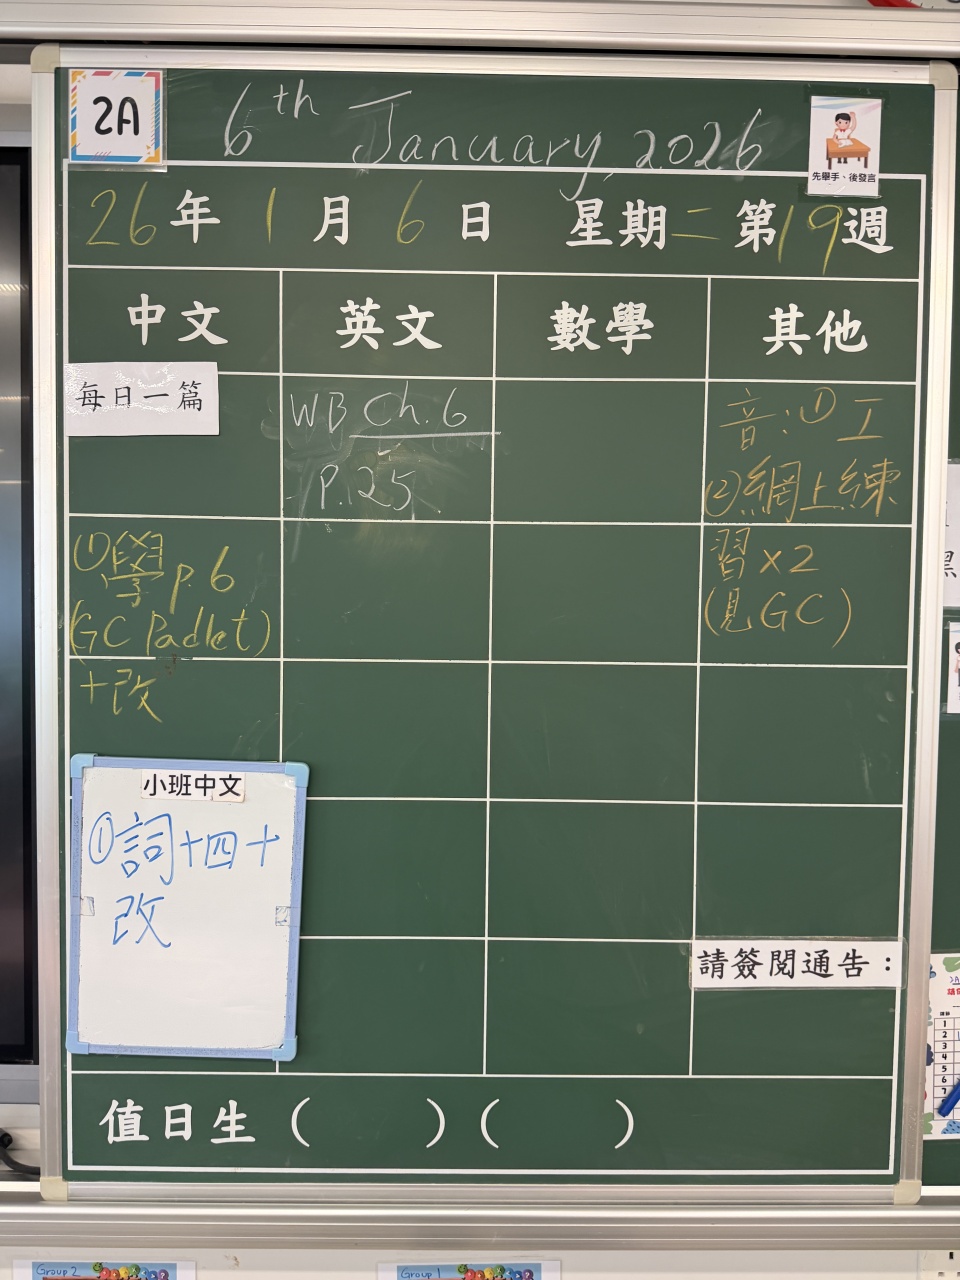 2A
6th January, 2026
先舉手、後發言
26年1月6日 星期二 第19週
中文 英文 數學 其他
每日一篇
①學p.6
(GC Padlet)
+改
小班中文
①詞十四+
改
WB Ch.6
P.25
音:①工
②網上練
習x2
(見GC)
請簽閱通告:
值日生( )( )
Group 2
Group 1